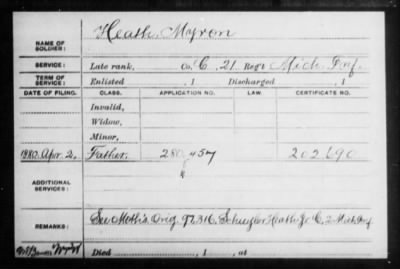 NAME OF SOLDIER: Heath, Myron
SERVICE: Late rank, Co. C, 21 Reg't Mich Inf.
TERM OF SERVICE: Enlisted , 1 Discharged , 1
DATE OF FILING. CLASS. APPLICATION NO. LAW. CERTIFICATE NO.
Invalid,
Widow,
Minor,
1880 Apr. 2. Father. 280.457 202.690
ADDITIONAL SERVICES:
REMARKS: See Moth's Orig. Heath Jr C, 2 Mich Inf.
Died , 1 , at